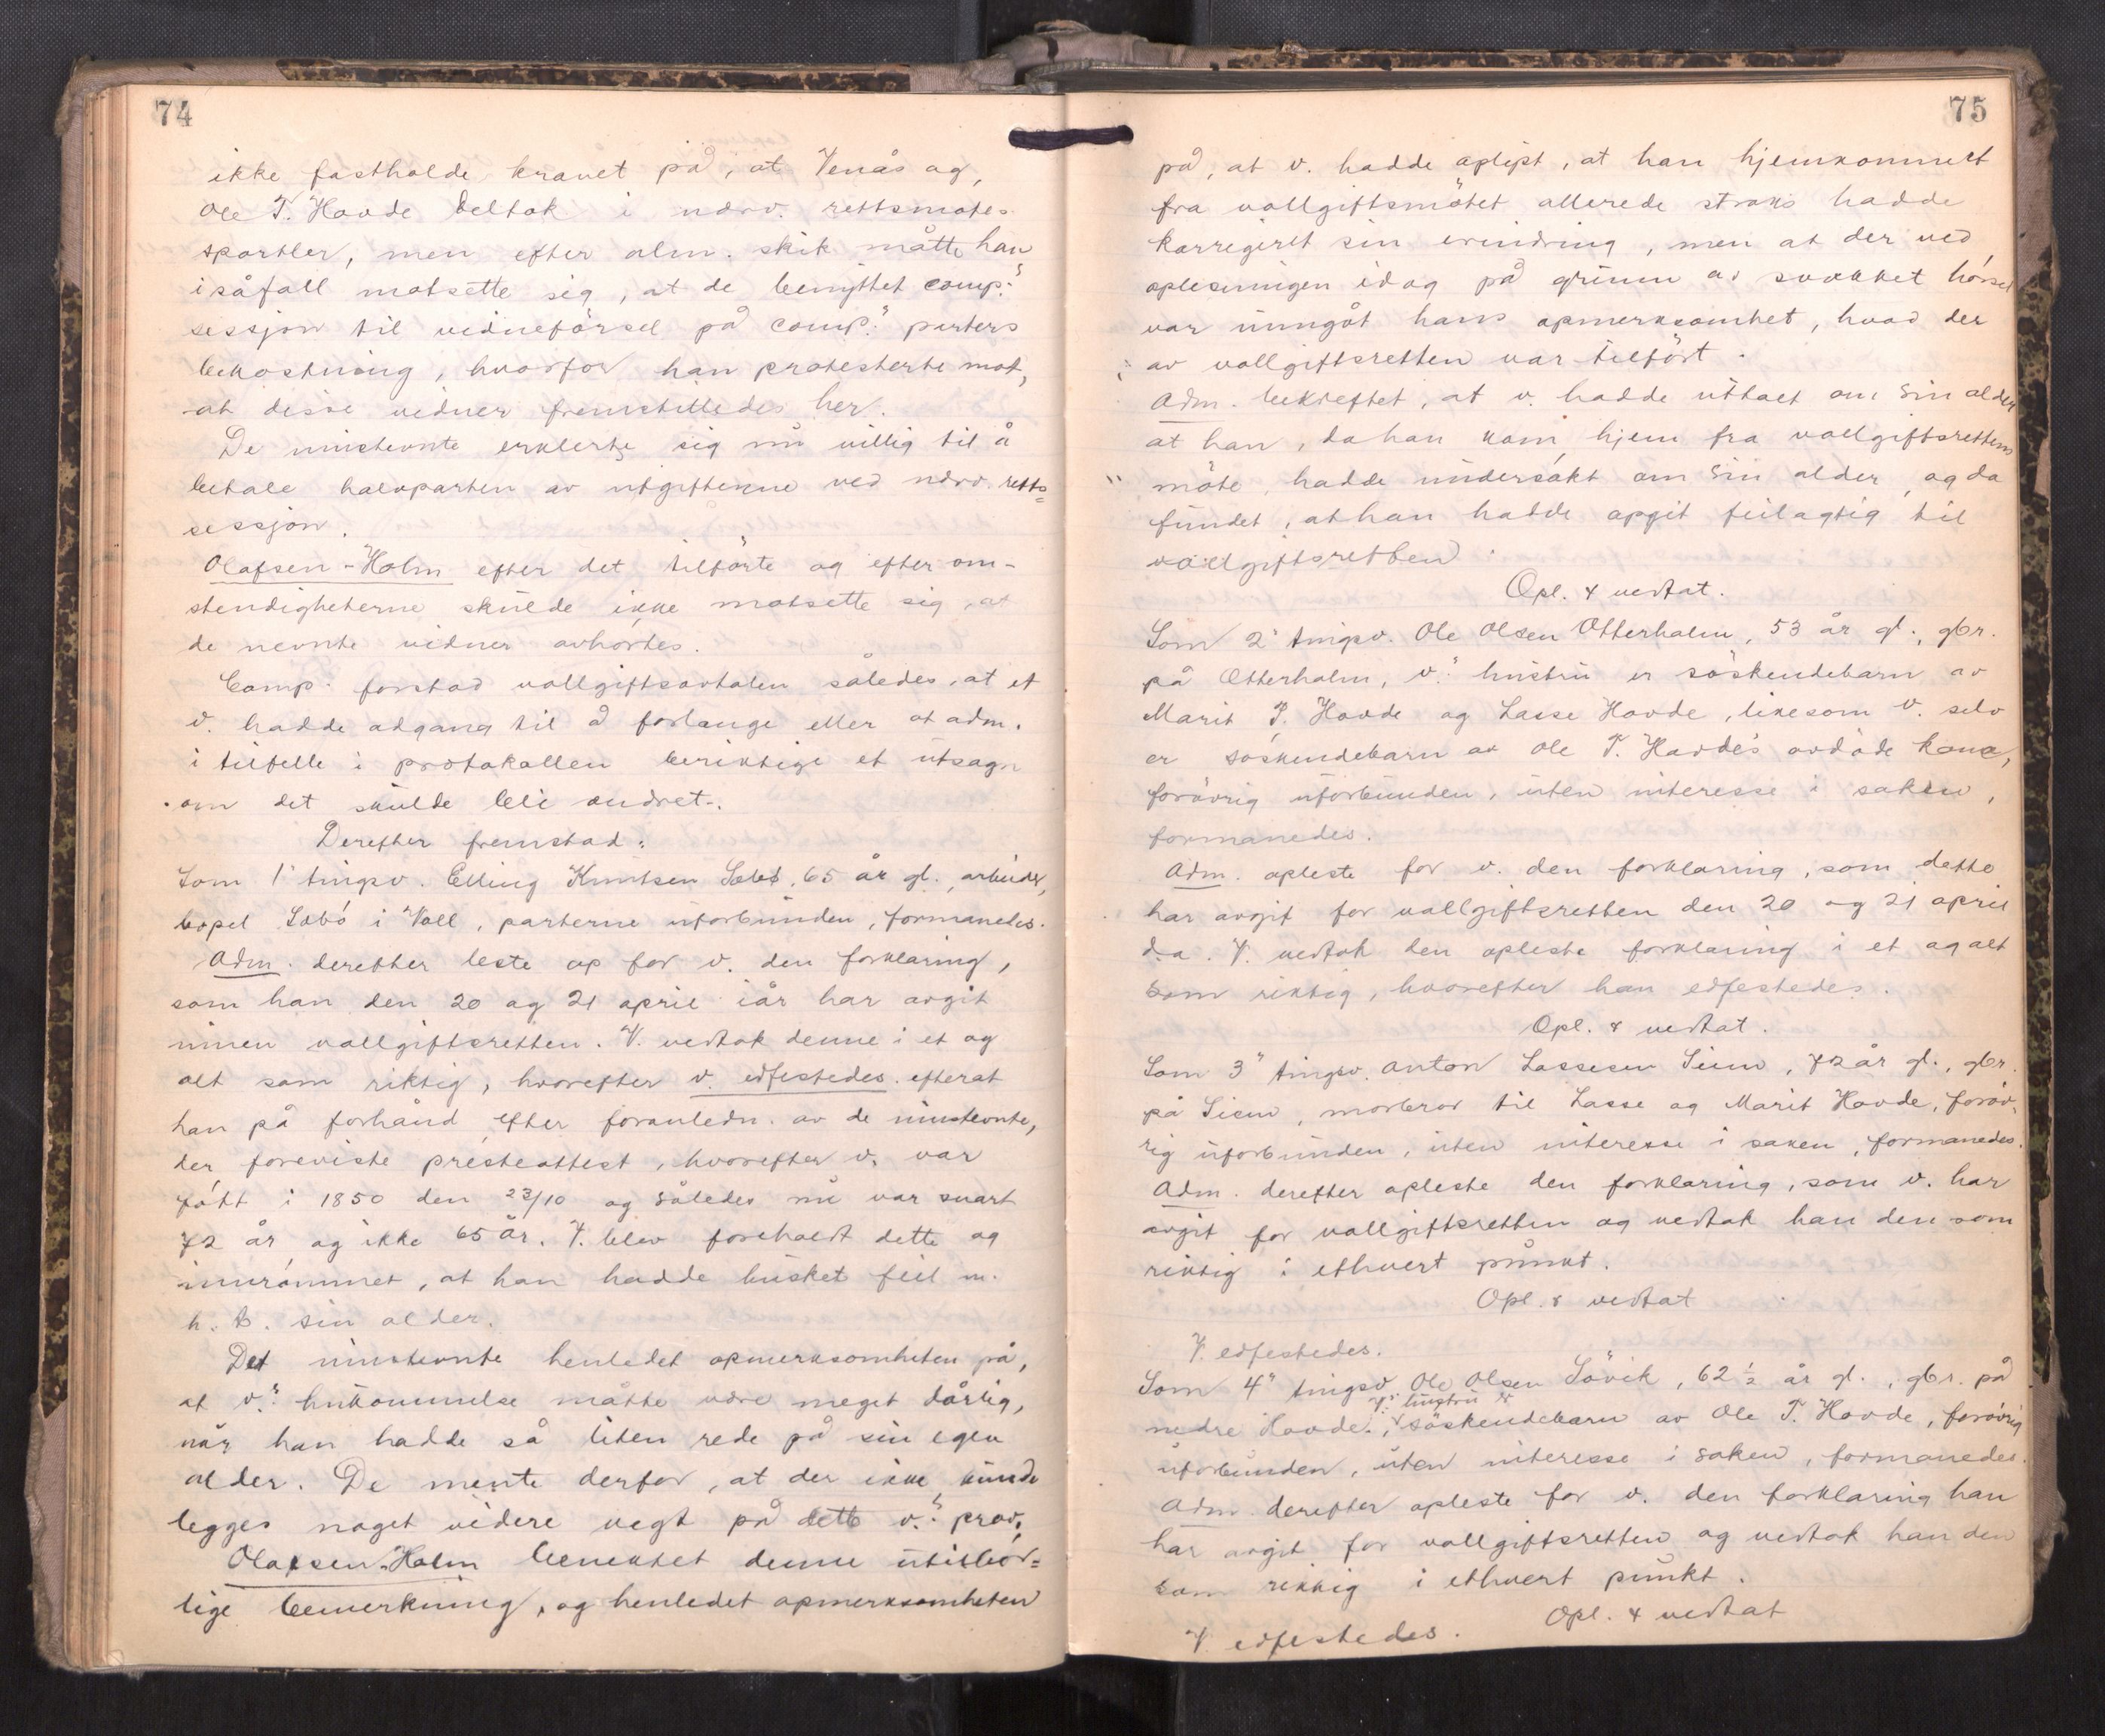 74
ikke fastholde kravet på, at Venås og,
Ole T. Hovde deltok i nærv. rettsmøtes
sportler, men efter alm. skik måtte han
isåfall motsette sig, at de benyttet comp.s
sessjon til vidneførsel på comp.s parters
bekostning, hvorfor han protesterte mot,
at disse vidner fremstilledes her.
De innstevnte erklerte sig nu villig til å
betale halvparten av utgifterne ved nærv. retts=
sessjon.
Olafsen-Holm efter det tilførte og efter om-
stendigheterne skulde ikke motsette sig, at
de nevnte vidner avhørtes.
Comp. forstod vollgiftsavtalen således, at et
v. hadde adgang til å forlange eller at adm.
i tilfelle i protokollen beriktige et utsagn
om det skulde bli endret.
Derefter fremstod:
Som 1' tingsv. Elling Knutsen Sæbø, 65 år gl., arbeider,
bopel Sæbø i Voll, parterne uforbunden, formanedes.
Adm. derefter leste op for v. den forklaring,
som han den 20 og 21 april iår har avgit
innen vollgiftsretten. V. vedtok denne i et og
alt som riktig, hvorefter v. edfestedes efterat
han på forhånd efter foranledn. av de innstevnte,
der foreviste presteattest, hvorefter v. var
født i 1850 den 23/10 og således nu var snart
72 år og ikke 65 år. V. blev foreholdt dette og
innrømmet, at han hadde husket feil m.
h. t. sin alder.
Det innstevnte henledet opmerksomheten på,
at v.s hukommelse måtte være meget dårlig,
når han hadde så liten rede på sin egen
alder. De mente derfor, at der ikke kunde
legges noget videre vegt på dette v.s prov.
Olafsen-Holm benektet denne utilbør=
lige bemerkning, og henledet opmerksomheten
75
på, at v. hadde oplyst, at han hjemkommet
fra vollgiftsmøtet allerede straks hadde
korrigiert sin erindring, men at der ved
oplesningen idag på grunn av svekket hørsel
var unngåt hans opmerksomhet, hvad der
av vollgiftsretten var tilført.
Adm. bekreftet, at v. hadde uttalt om sin alder
at han, da han kom hjem fra vollgiftsrettens
møte, hadde undersøkt om sin alder, og da
fundet, at han hadde opgit feilagtig til
vollgiftsretten.
Opl. & vedtat.
Som 2' tingsv. Ole Olsen Otterholm, 53 år gl., gbr.
på Otterholm, v.s hustru er søskendebarn av
Marit P. Hovde og Lasse Hovde, likesom v. selv
er søskendebarn av Ole T. Hovde's avdøde kone,
forøvrig uforbunden, uten interesse i saken,
formanedes.
Adm. opleste for v. den forklaring, som dette
har avgit for vollgiftsretten den 20 og 21 april
d.a. V. vedtok den opleste forklaring i et og alt
som riktig, hvorefter han edfestedes.
Opl. & vedtat.
Som 3" tingsv. Anton Lassesen Siem, 72 år gl., gbr.
på Siem, morbror til Lasse og Marit Hovde, forøv-
rig uforbunden, uten interesse i saken, formanedes.
Adm. derefter opleste den forklaring, som v. har
avgit for vollgiftsretten og vedtok han den som
riktig i ethvert punkt.
Opl. & vedtat
V. edfestedes.
Som 4" tingsv. Ole Olsen Løvik, 62 ½ år gl., gbr. på
v.s hustru er
nedre Hovde, søskendebarn av Ole T. Hovde, forøvrig
uforbunden, uten interesse i saken, formanedes.
Adm. derefter opleste for v. den forklaring han
har avgit for vollgiftsretten og vedtok han den
som riktig i ethvert punkt.
Opl. & vedtat
V. edfestedes.